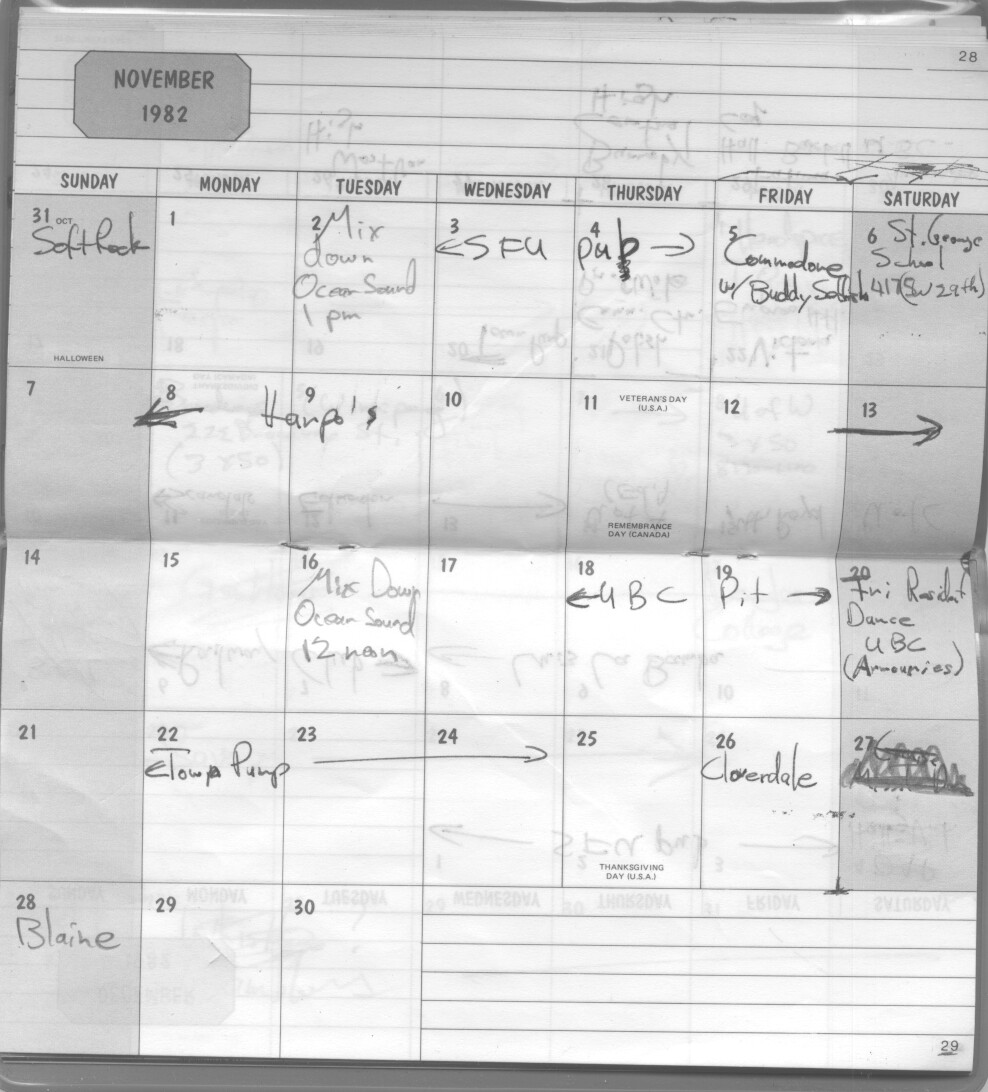 28
NOVEMBER
1982
SUNDAY MONDAY TUESDAY WEDNESDAY THURSDAY FRIDAY SATURDAY
31 OCT. 1 2 3 4 5 6
Soft Rock
HALLOWEEN
Mix
down
Ocean Sound
1 pm
← SFU pub →
Commodore
w/ Buddy
St. George
School
29th)
7 8 9 10 11 12 13
← Harpo's →
VETERAN'S DAY
(U.S.A.)
REMEMBRANCE
DAY (CANADA)
14 15 16 17 18 19 20
Mix Down
Ocean Sound
12 noon
← UBC Pit →
Dance
UBC
(Armouries)
21 22 23 24 25 26 27
← Town Pump →
THANKSGIVING
DAY (U.S.A.)
Cloverdale
28 29 30
Blaine
29